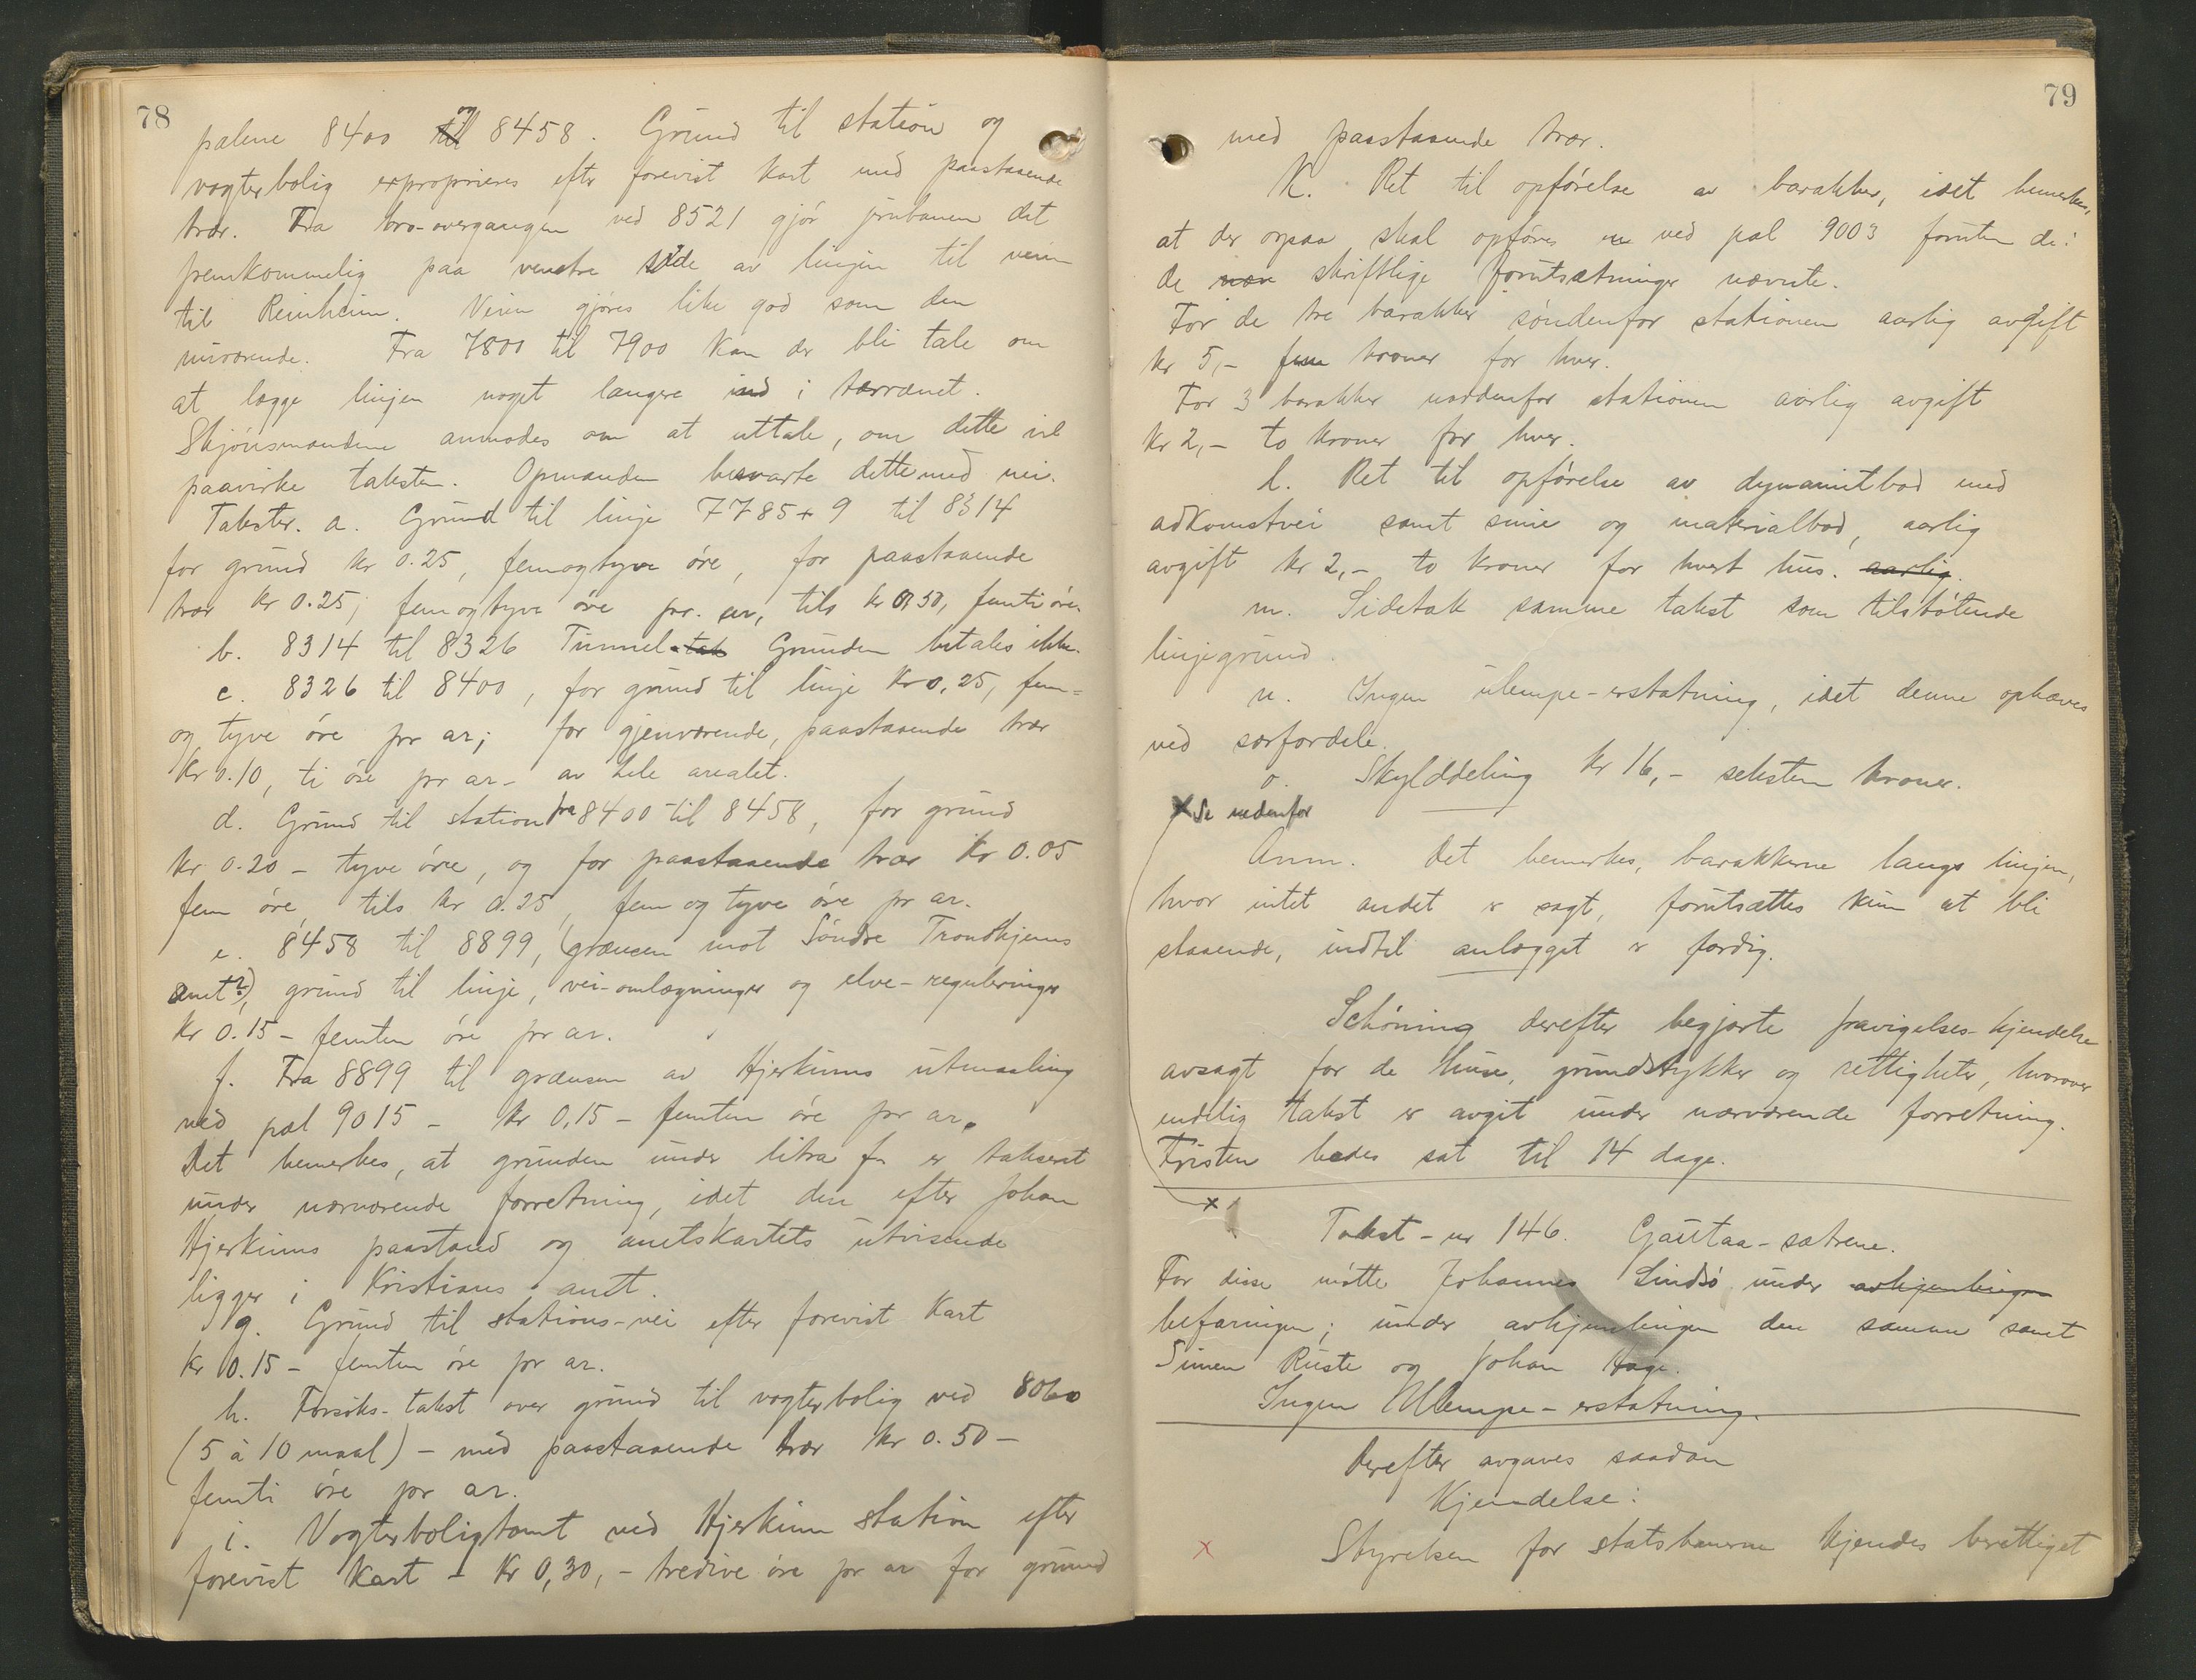 78
pælene 8400 og 8458. Grund til station og
vogterbolig exproprieres efter forevist kart med paastaaende
trær. Fra bro-overgangen ved 8521 gjör jernbanen det
fremkommelig paa venstre side av linjen til veien
til Reinheim. Veien gjöres like god som den
nuværende. Fra 7800 til 7900 kan der bli tale om
at lægge linjen noget længere ind i terrænet.
Skjönsmændene anmodes om at uttale, om dette vil
paavirke taksten. Opmanden besvarte dette med nei.
Takster. a. Grund til linje 7785+9 til 8314
for grund kr 0.25, femogtyve öre, for paastaaende
trær kr 0.25, femogtyve öre pr. ar, tils kr 0.50, femti öre.
b. 8314 til 8326 Tunnel. Grunden betales ikke.
c. 8326 til 8400, for grund til linje kr 0,25, fem=
og tyve öre pr ar; for gjenværende, paastaaende trær
kr 0.10, ti öre pr ar - av hele arealet.
d. Grund til station fra 8400 til 8458, for grund
kr 0.20 - tyve öre, og for paastaaende trær kr 0.05
fem öre, tils kr 0.25, fem og tyve öre pr ar.
e. 8458 til 8899, (grænsen mot Söndre Trondhjems
amt?), grund til linje, vei-omlægninger og elve-reguleringer
kr 0.15 - femten öre pr ar.
f. Fra 8899 til grænsen av Hjerkinns utmaaling
ved pæl 9015 - kr 0,15 - femten öre pr ar.
Det bemerkes, at grunden under litra f er taksert
under nærværende forretning, idet den efter Johan
Hjerkinns paastand og amtskartets utvisende
ligger i Kristians amt.
g. Grund til stations-vei efter forevist kart
kr 0.15 - femten öre pr ar.
h. Forsöks-takst over grund til vogterbolig ved 8060
(5 à 10 maal) - med paastaaende trær kr 0.50 -
femti öre pr ar.
i. Vogterboligtomt ved Hjerkinn station efter
forevist kart - kr 0,30, - tredive öre pr ar for grund
79
med paastaaende trær.
K. Ret til opförelse av barakker, idet bemerkes,
at der ogsaa skal opföres en ved pæl 9003 foruten de i
de skriftlige forutsætninger nævnte.
For de tre barakker söndenfor stationen aarlig avgift
kr 5,- fem kroner for hver.
For 3 barakker nordenfor stationen aarlig avgift
kr 2,- to kroner for hver.
l. Ret til opförelse av dynamitbod med
adkomstvei samt smie og materialbod, aarlig
avgift kr 2,- to kroner for hvert hus. aarlig.
m. Sidetak samme takst som tilstötende
linjegrund.
n. Ingen ulempe-erstatning, idet denne ophæves
ved særfordele.
o. Skylddeling kr 16,- seksten kroner.
x Se nedenfor
Anm. Det bemerkes, barakkerne langs linjen,
hvor intet andet er sagt, forutsættes kun at bli
staaende, indtil anlægget er færdig.
Schöning derefter begjærte fravigelses-kjendelse
avsagt for de huse, grundstykker og rettigheter, hvorover
endelig takst er avgit under nærværende forretning.
Fristen bedes sat til 14 dage.
x
Takst-nr 146. Gautaa-sætrene.
For disse mötte Johannes Lindsö under avhjemlingen
befaringen; under avhjemlingen den samme samt
Simen Ruste og Johan Hage.
Ingen Ulempe-erstatning.
Derefter avgaves saadan
Kjendelse:
x Styrelsen for statsbanerne kjendes berettiget